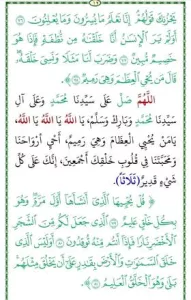 يَحْزُنكَ قَوْلُهُمْ إِنَّا نَعْلَمُ مَا يُسِرُّونَ وَمَا يُعْلِنُونَ
أَوَلَمْ يَرَ الْإِنسَٰنُ أَنَّا خَلَقْنَٰهُ مِن نُّطْفَةٍ فَإِذَا هُوَ
خَصِيمٌ مُّبِينٌ وَضَرَبَ لَنَا مَثَلًا وَنَسِيَ خَلْقَهُۥ
قَالَ مَن يُحْيِ الْعِظَٰمَ وَهِيَ رَمِيمٌ
اللَّهُمَّ صَلِّ عَلَى سَيِّدِنَا مُحَمَّدٍ وَعَلَى آلِ
سَيِّدِنَا مُحَمَّدٍ وَبَارِكْ وَسَلِّمْ، يَا اللهُ يَا اللهُ يَا اللهُ،
يَا مَنْ يُحْيِي الْعِظَامَ وَهِيَ رَمِيمٌ، أَحْيِ أَرْوَاحَنَا
وَمَحَبَّتَنَا فِي قُلُوبِ خَلْقِكَ أَجْمَعِينَ، إِنَّكَ عَلَى كُلِّ
شَيْءٍ قَدِيرٌ (ثَلَاثًا)
قُلْ يُحْيِيهَا الَّذِي أَنشَأَهَا أَوَّلَ مَرَّةٍ وَهُوَ
بِكُلِّ خَلْقٍ عَلِيمٌ الَّذِي جَعَلَ لَكُم مِّنَ الشَّجَرِ
الْأَخْضَرِ نَارًا فَإِذَا أَنتُم مِّنْهُ تُوقِدُونَ أَوَلَيْسَ الَّذِي
خَلَقَ السَّمَٰوَٰتِ وَالْأَرْضَ بِقَٰدِرٍ عَلَىٰ أَن يَخْلُقَ مِثْلَهُم
بَلَىٰ وَهُوَ الْخَلَّٰقُ الْعَلِيمُ